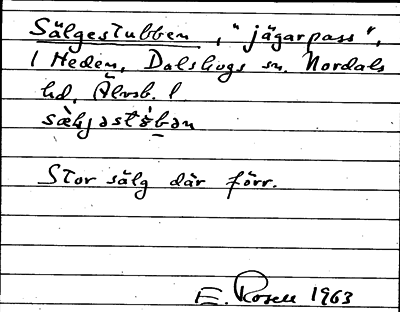 Sälgestubben, "jägarpass",
1 Heden, Dalskogs sn. Nordals
hd, Älvsb. l
Stor sälg där förr.
E. Rosell 1963